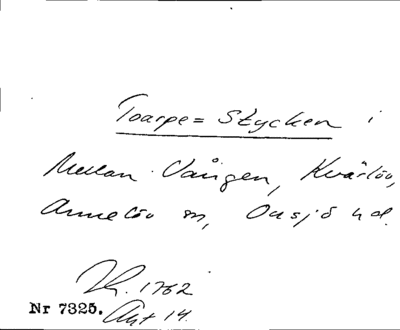 Toarpe= Stycken i
Mellan Vången, Kvärlöv,
Annelöv sn, Onsjö hd.
H. 1762
Nr 7325. Akt 14